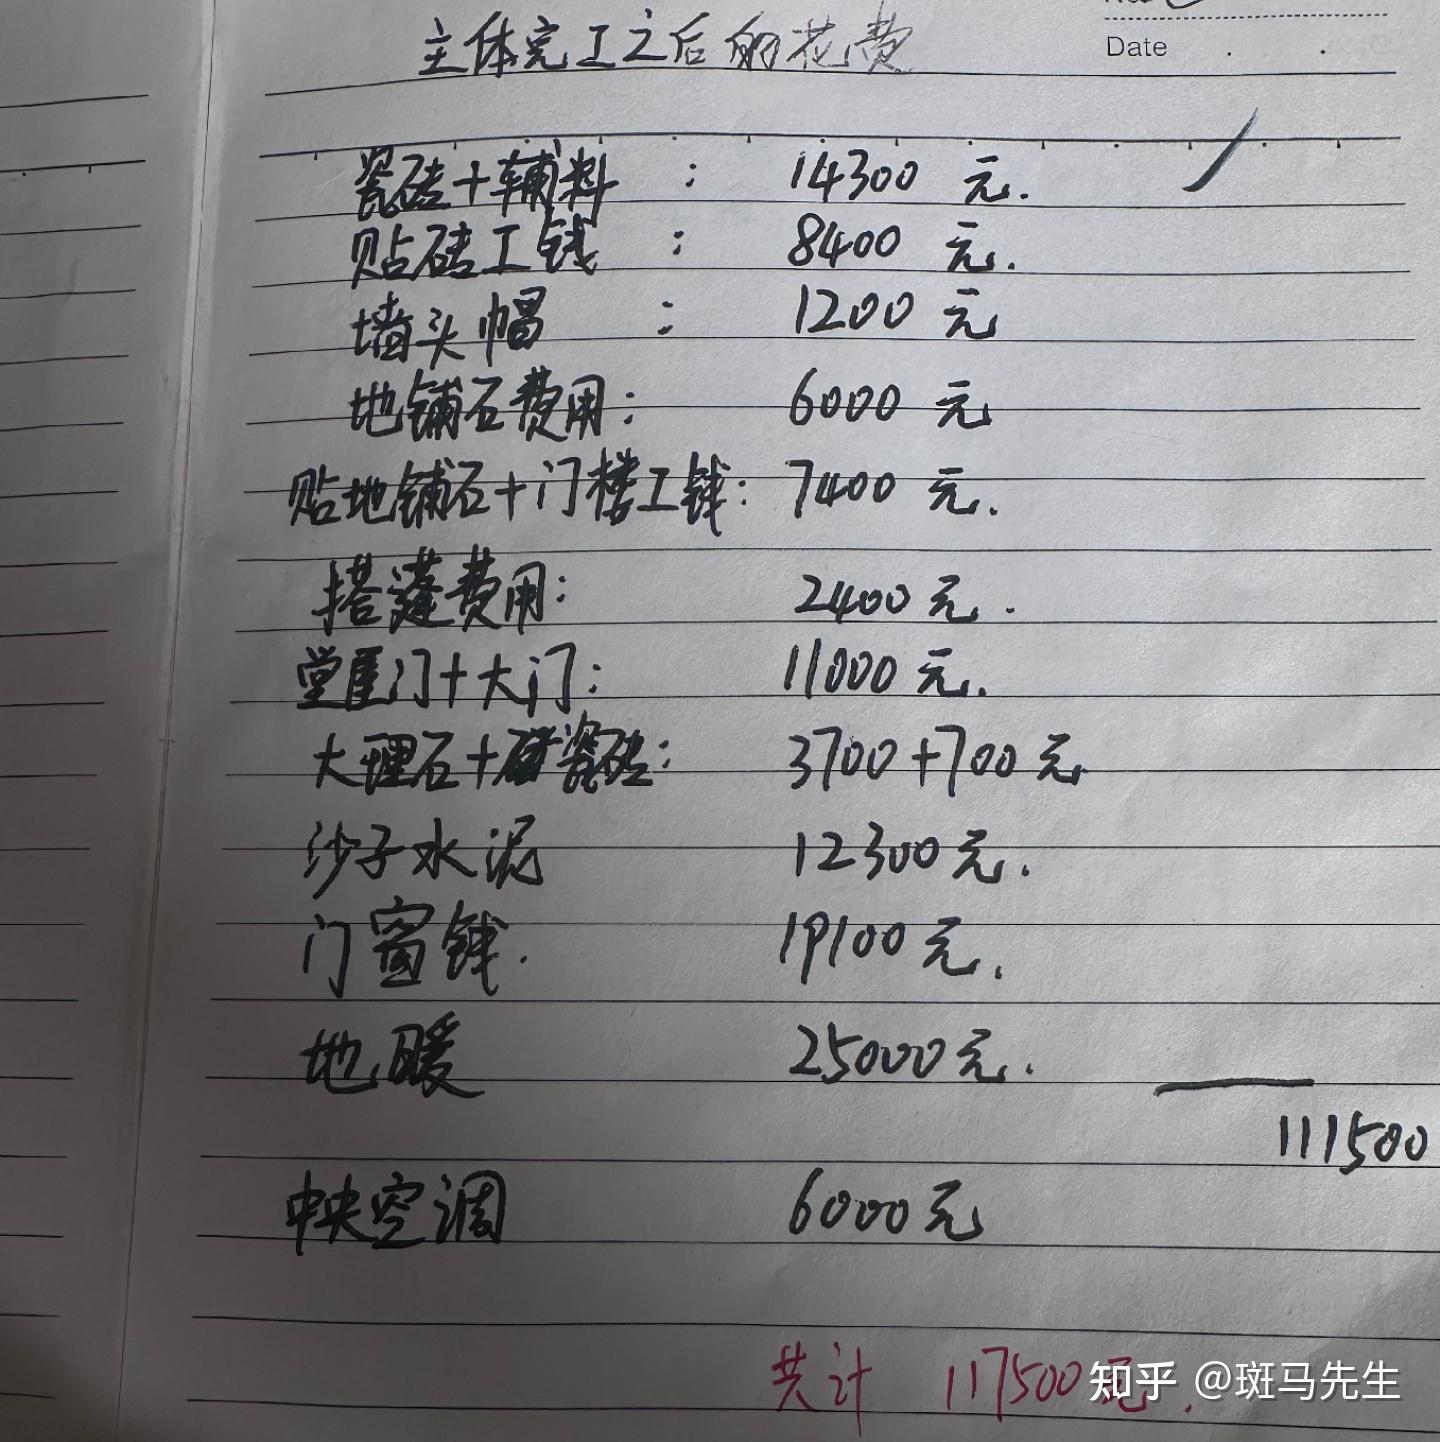 主体完工之后的花费
Date
瓷砖+辅料 : 14300 元.
贴砖工钱 : 8400 元.
墙头帽 : 1200 元
地铺石费用: 6000 元
贴地铺石+门楼工钱: 7400 元.
搭蓬费用: 2400元.
堂屋门+大门: 11000元.
大理石+瓷砖: 3700+700元
沙子水泥 12300元.
门窗钱. 19100元.
地暖 25000元.
111500
中央空调 6000元
共计 117500元.
知乎 @斑马先生